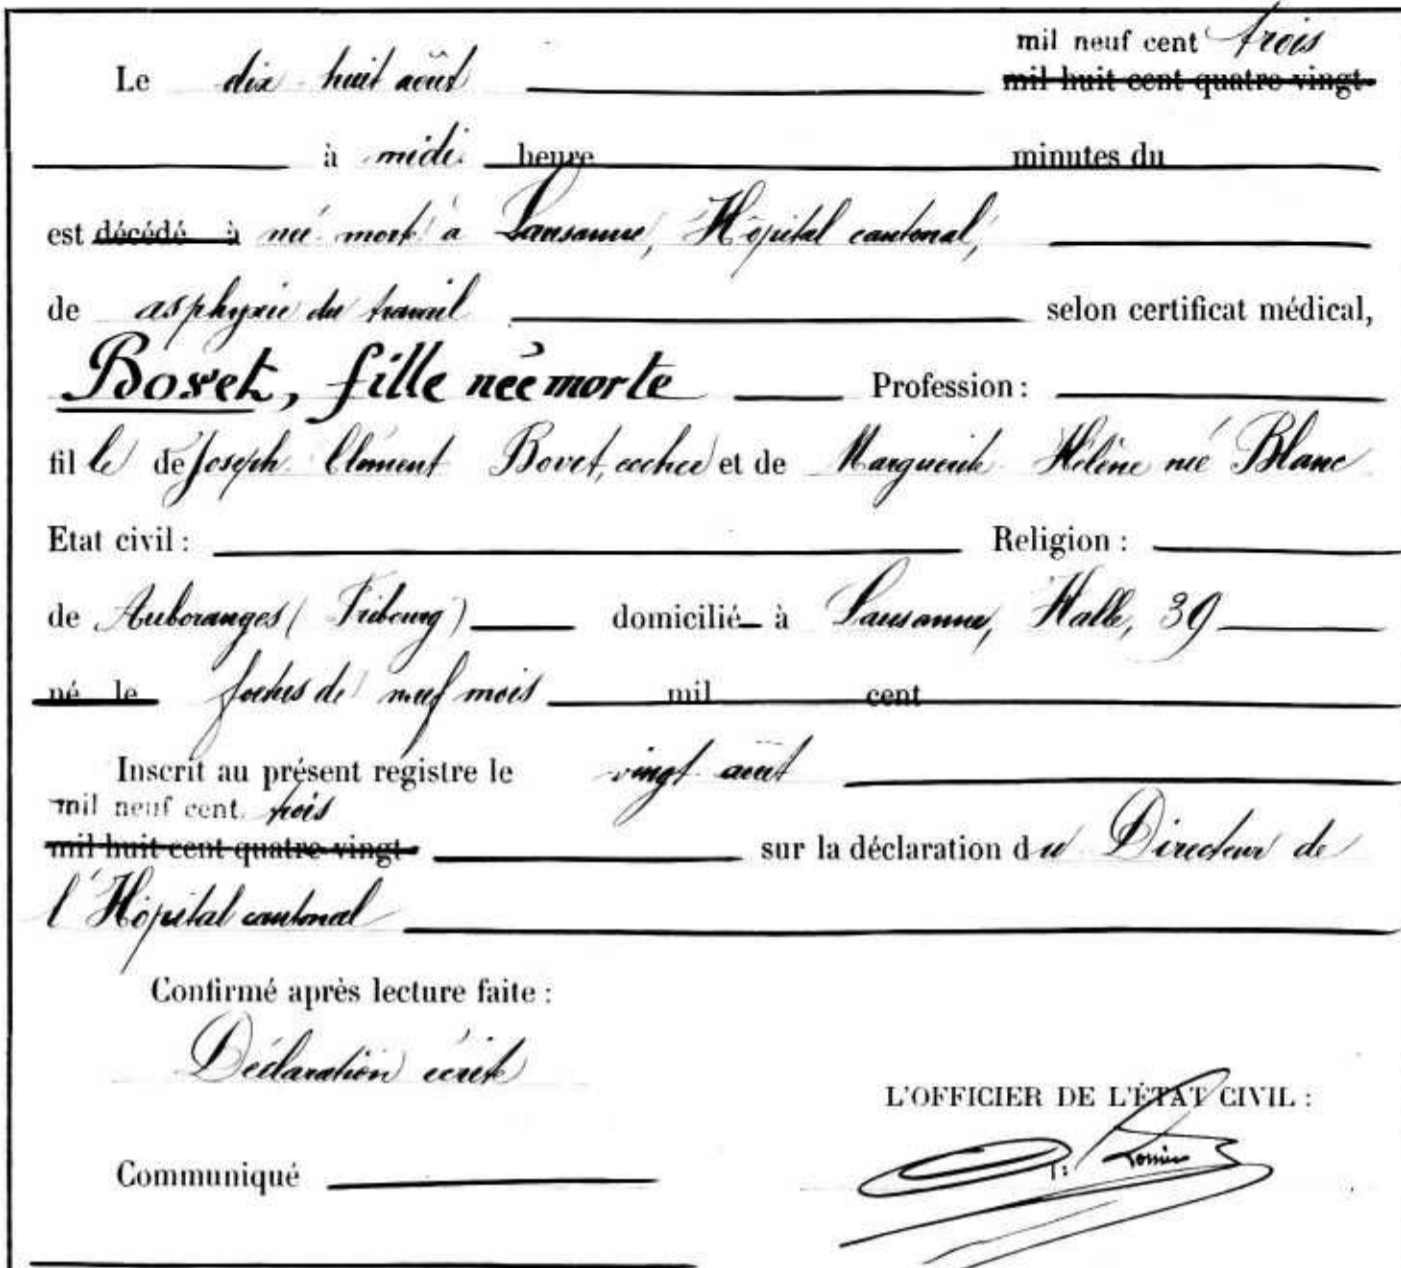 mil neuf cent trois
Le dix huit août mil huit cent quatre vingt
à midi heure minutes du
est décédé à née morte à Lausanne, Hôpital cantonal,
de asphyxie du travail selon certificat médical,
Bovet, fille née morte Profession :
fille de Joseph Clément Bovet, cocher et de Marguerite Hélène née Blanc
Etat civil : Religion :
de Auboranges (Fribourg) domicilié à Lausanne, Halle, 39
né le foetus de neuf mois mil cent
Inscrit au présent registre le vingt août
mil neuf cent trois
mil huit cent quatre vingt sur la déclaration du Directeur de
l'Hôpital cantonal
Confirmé après lecture faite :
Déclaration écrite
L'OFFICIER DE L'ÉTAT CIVIL :
Communiqué